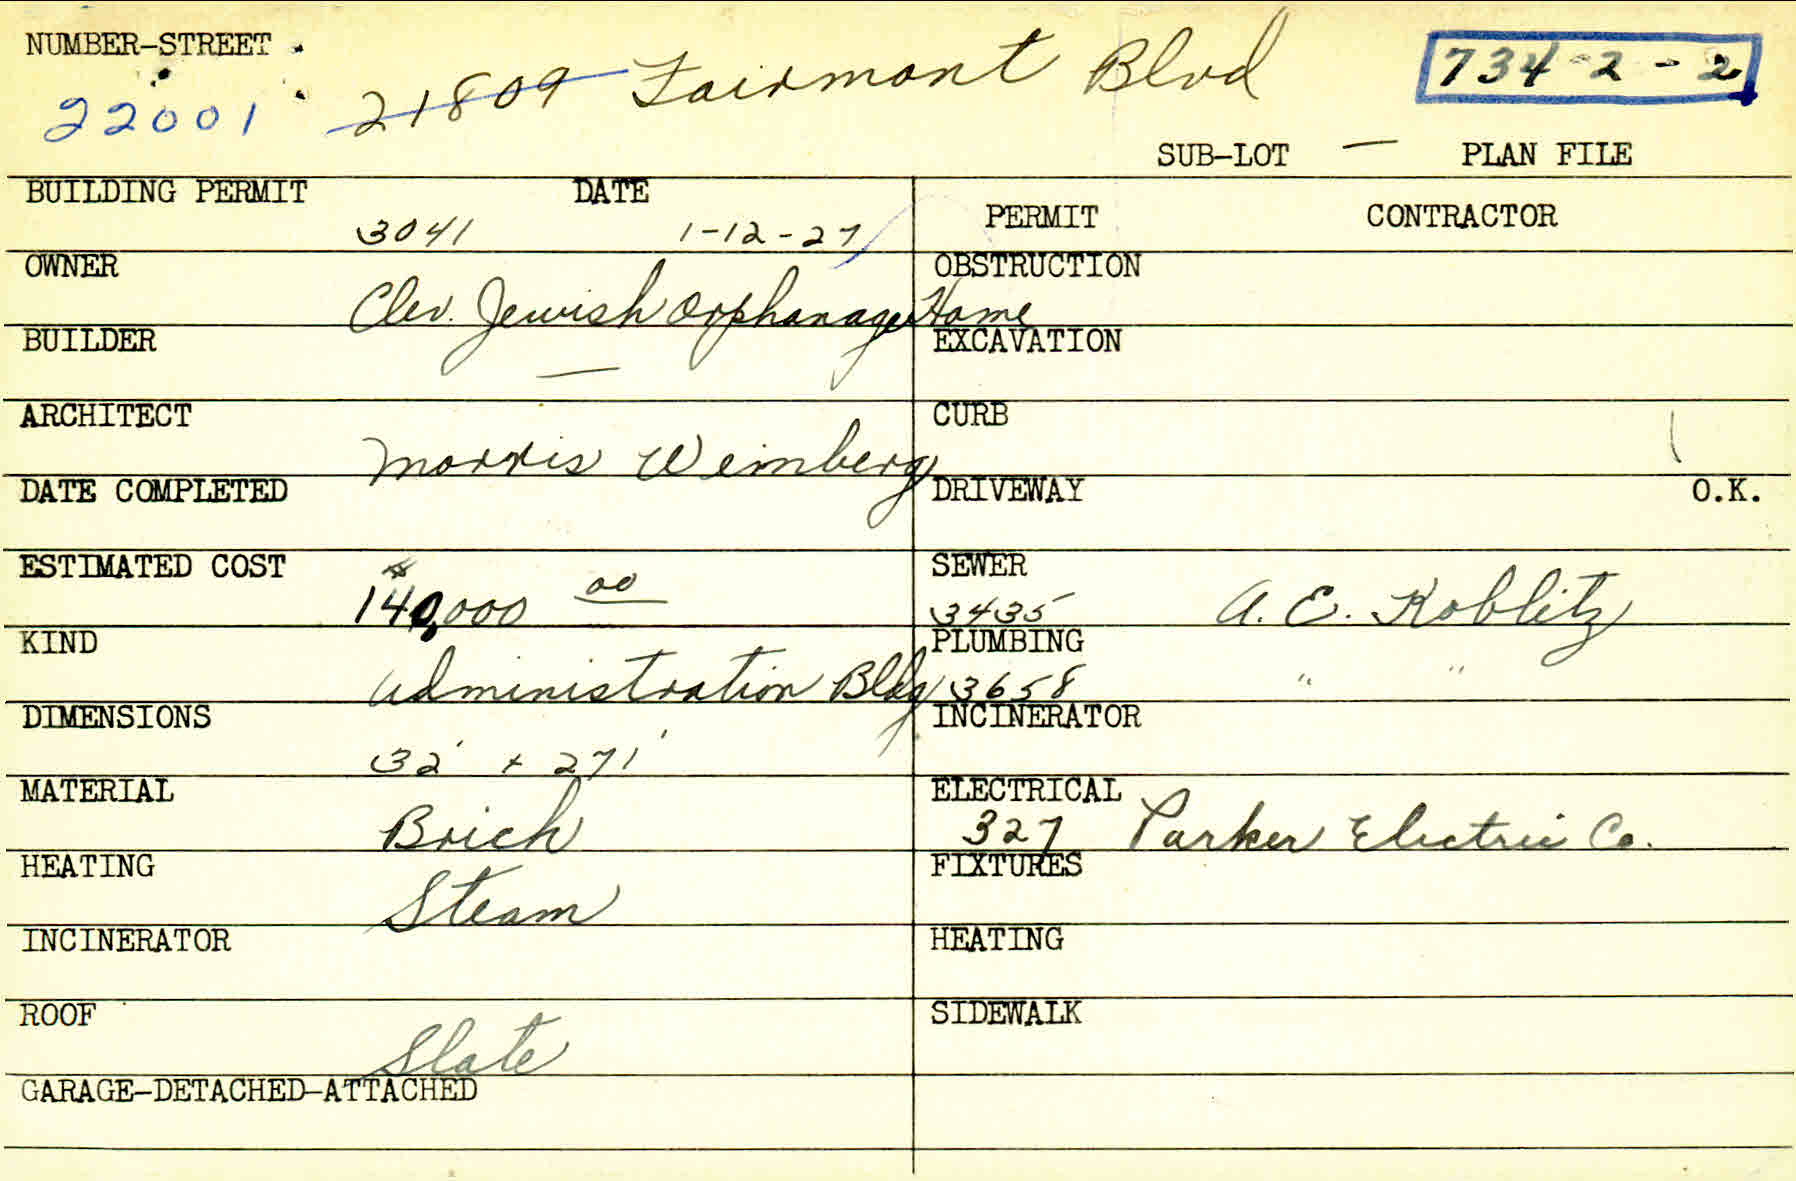 NUMBER-STREET
22001 21809 Fairmont Blvd
734-2-2
SUB-LOT — PLAN FILE
BUILDING PERMIT 3041 DATE 1-12-27
PERMIT CONTRACTOR
OWNER Clev. Jewish Orphanage Home
OBSTRUCTION
BUILDER —
EXCAVATION
ARCHITECT Morris Weinberg
CURB
DATE COMPLETED
DRIVEWAY O.K.
ESTIMATED COST $140,000 00
SEWER 3435 A. E. Koblitz
KIND Administration Bldg
PLUMBING 3658 " "
DIMENSIONS 32' x 271'
INCINERATOR
MATERIAL Brick
ELECTRICAL 327 Parker Electric Co.
HEATING Steam
FIXTURES
INCINERATOR
HEATING
ROOF Slate
SIDEWALK
GARAGE-DETACHED-ATTACHED